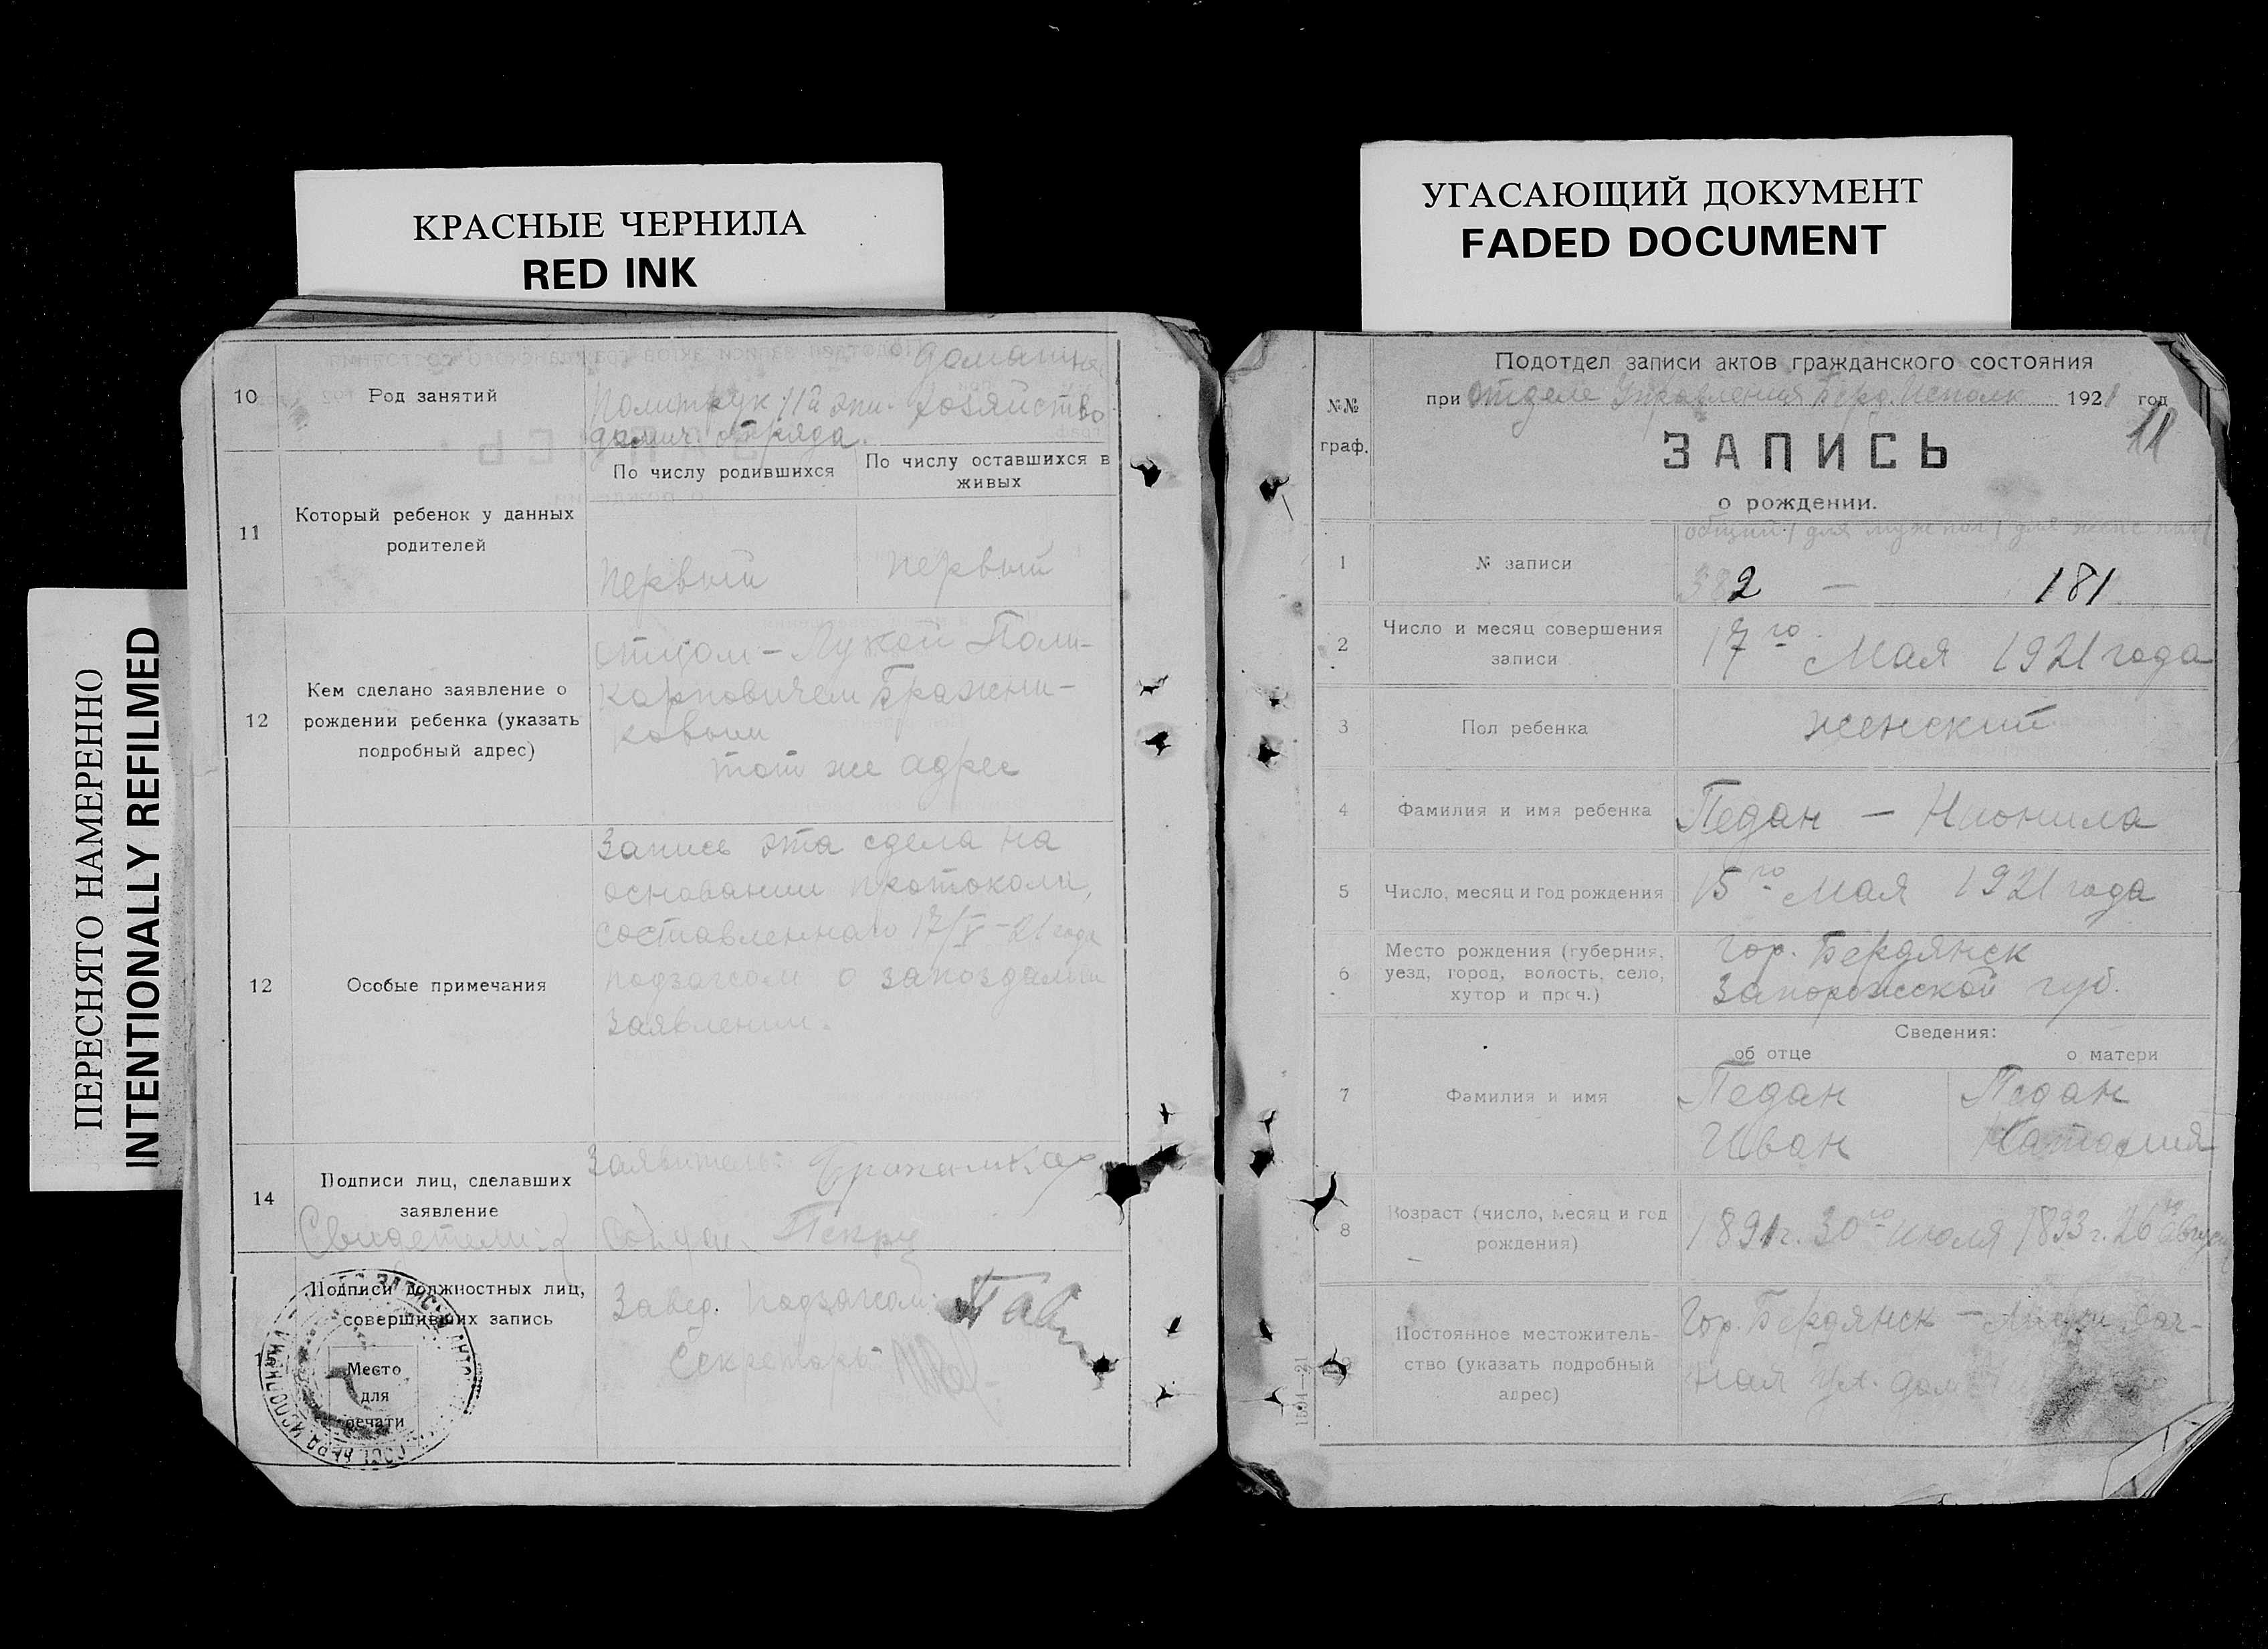 КРАСНЫЕ ЧЕРНИЛА
RED INK
УГАСАЮЩИЙ ДОКУМЕНТ
FADED DOCUMENT
ПЕРЕСНЯТО НАМЕРЕННО
INTENTIONALLY REFILMED
10
Род занятий
Политрук 11а эпи-
дамич. отряда.
домашнее
хозяйство
11
Который ребенок у данных
родителей
По числу родившихся
По числу оставшихся в
живых
первый
первый
12
Кем сделано заявление о
рождении ребенка (указать
подробный адрес)
отцом – Лукой Поли-
карповичем Бражни-
ковым
тот же адрес
12
Особые примечания
Запись эта сдела на
основании протокола,
составленнаго 17/V – 21 года
подзагсом о запоздалом
заявлении.
14
Подписи лиц, сделавших
заявление
Свидетели:
Заявитель:
Подписи должностных лиц,
совершивших запись
Завед. подзагсом:
Секретарь
Место
для
печати
№№
граф.
Подотдел записи актов гражданского состояния
при отделе Управления Берд. Исполк 1921 год
11
ЗАПИСЬ
о рождении.
общий / для муж пол / для женс пол /
1
№ записи
382 — 181
2
Число и месяц совершения
записи
17го Мая 1921 года
3
Пол ребенка
женский
4
Фамилия и имя ребенка
Педан — Нионила
5
Число, месяц и год рождения
15го Мая 1921 года
6
Место рождения (губерния,
уезд, город, волость, село,
хутор и проч.)
гор. Бердянск
Запорожской губ.
Сведения:
об отце
о матери
7
Фамилия и имя
Педан
Иван
Педан
Наталия
8
Возраст (число, месяц и год
рождения)
1891 г. 30го июля
1893 г. 26го августа
Постоянное местожитель-
ство (указать подробный
адрес)
Гор. Бердянск —
ная ул. дом
1591—21